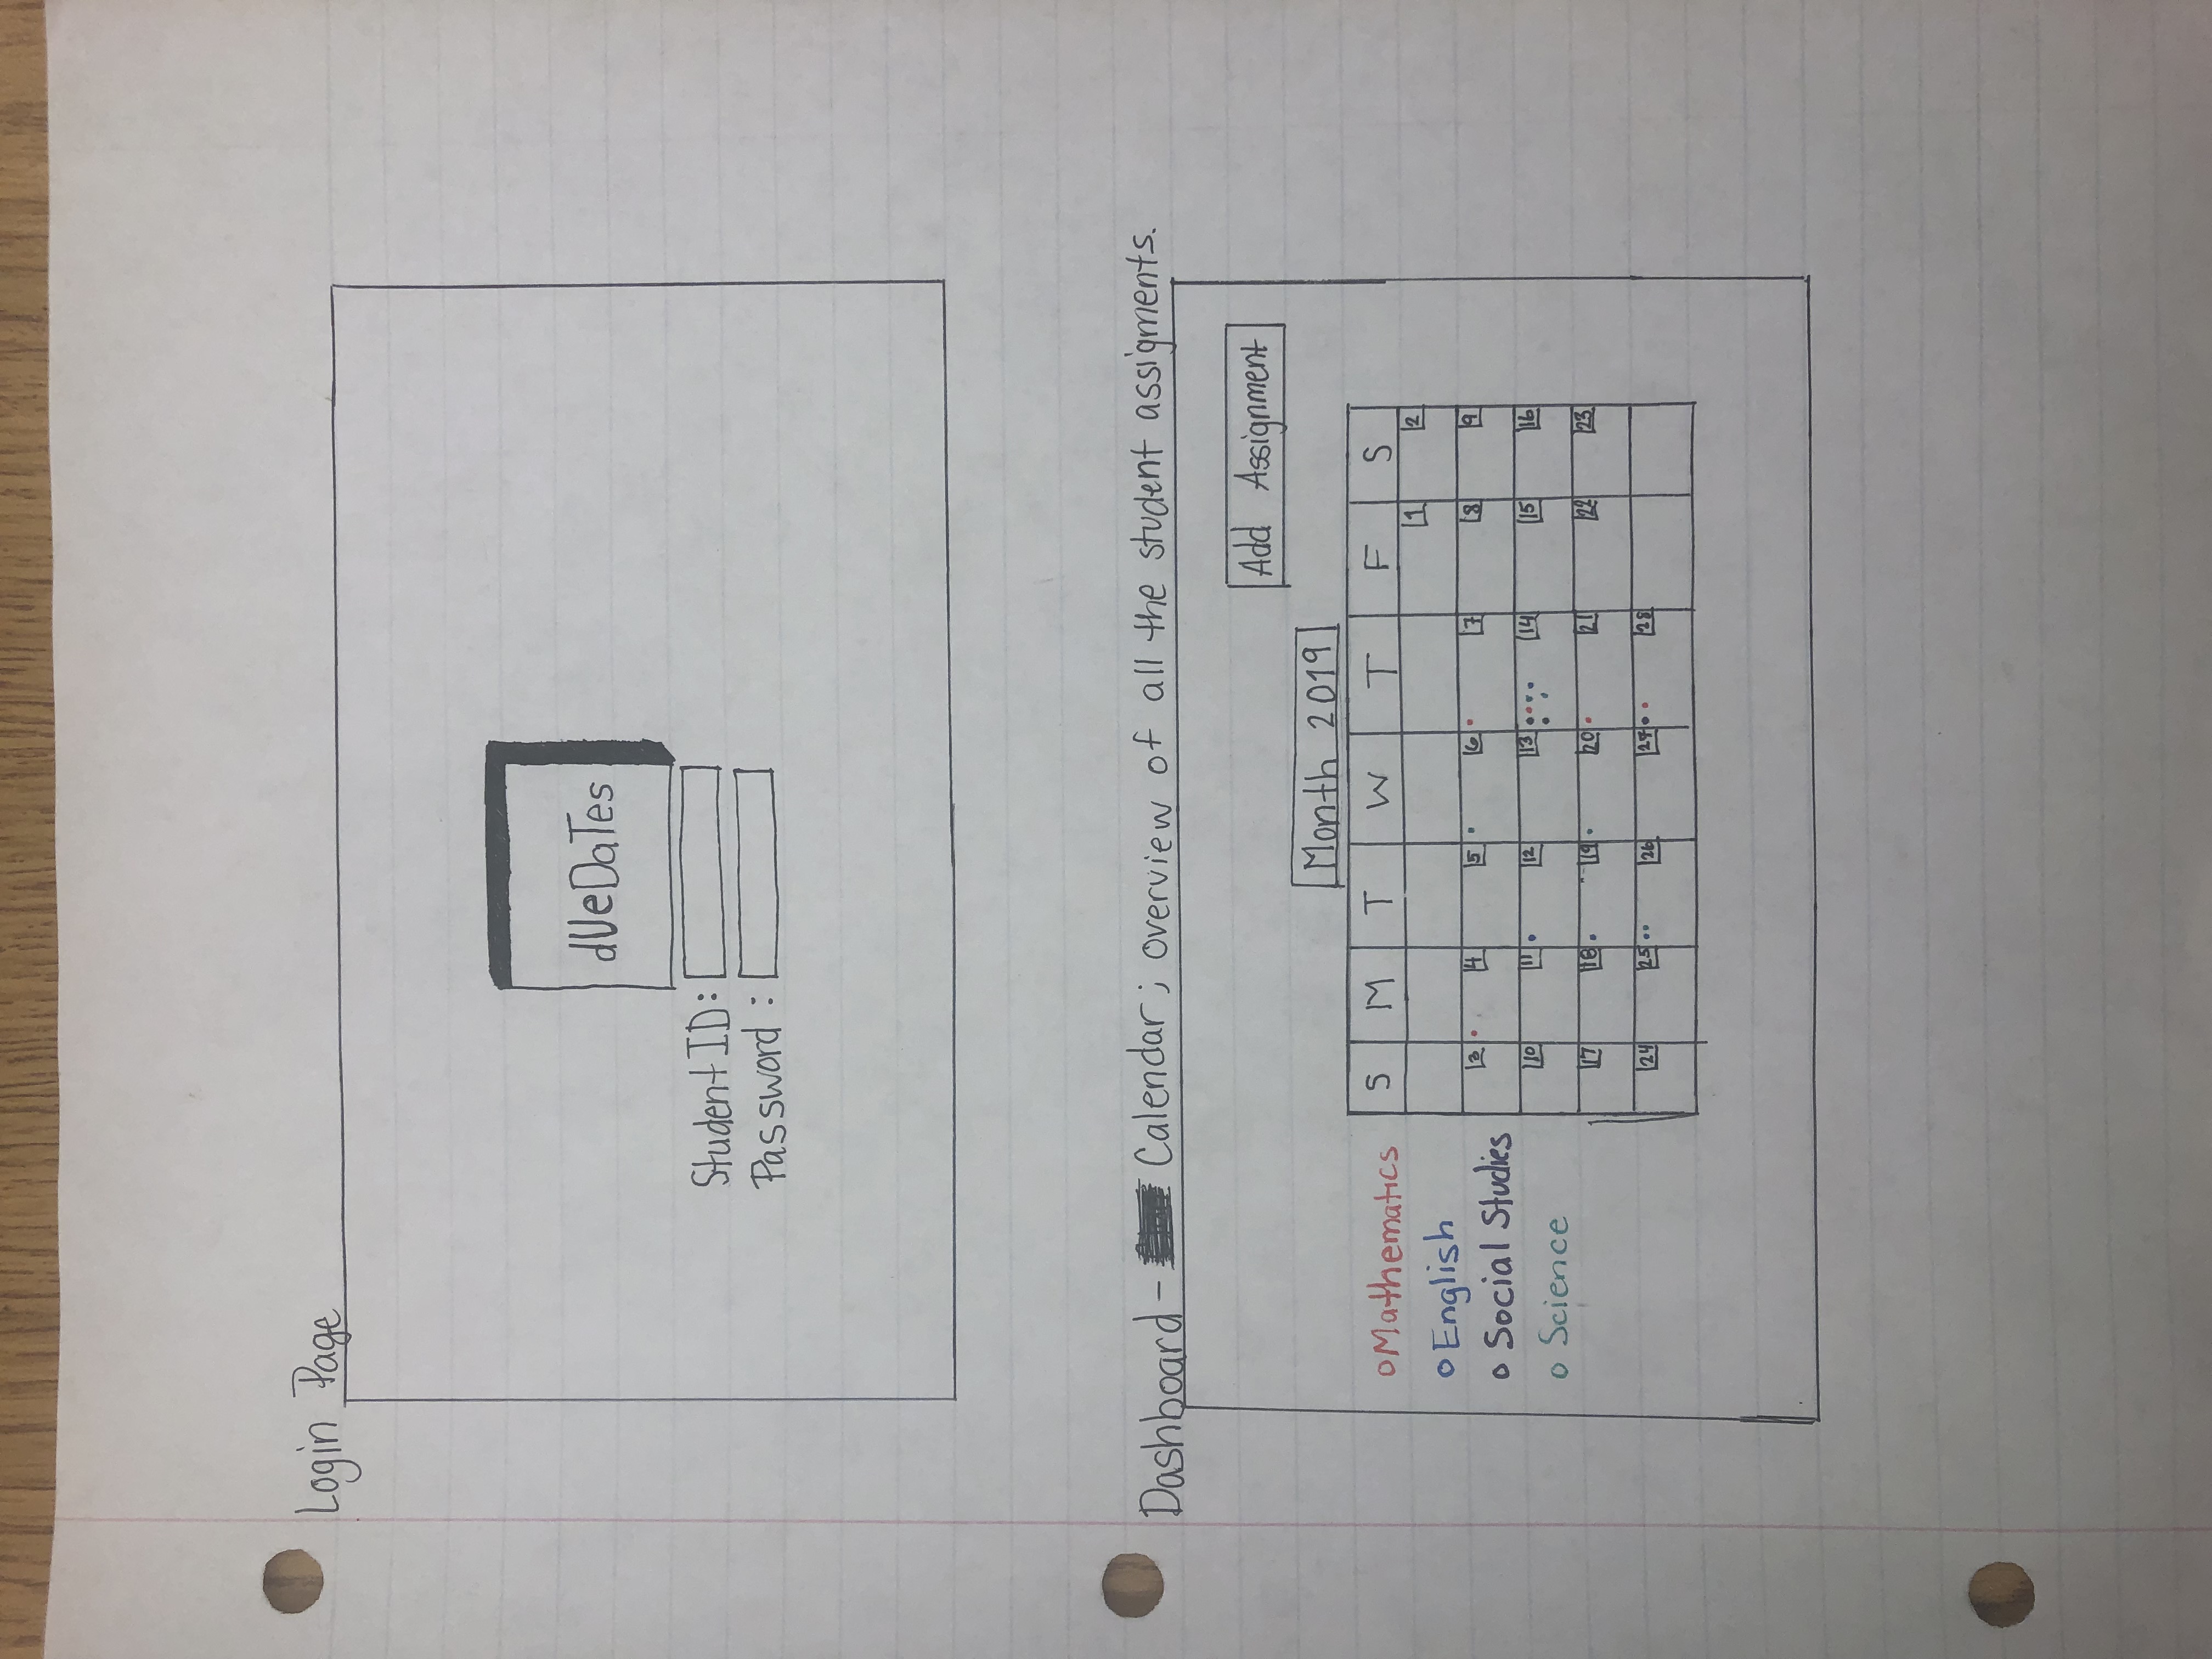 Login Page
dUeDaTes
Student ID:
Password :
Dashboard - Calendar; overview of all the student assigments.
Add Assignment
Month 2019
Mathematics
English
Social Studies
Science
S M T W T F S
1 2
3 4 5 6 7 8 9
10 11 12 13 14 15 16
17 18 19 20 21 22 23
24 25 26 27 28